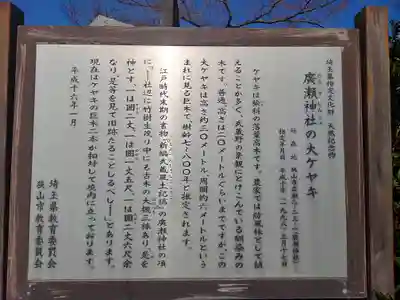 埼玉県指定文化財 天然記念物
廣瀬神社の大ケヤキ
ケヤキは楡科の落葉高木です。農家では防風林として植
えることが多く、武蔵野の景観にとけこんでいる馴染みの
木です。普通、高さは二〇メートルくらいまでですが、この
大ケヤキは高さ約三〇メートル、周囲約六メートルという
まれに見る巨木で、樹齢七〜八〇〇年と推定されます。
江戸時代末期の書物『新編武蔵風土記稿』の廣瀬神社の項
に、「――社辺に竹樹生茂り中にも古木の大槻三株あり、是を
神とす、一は囲二丈、一は囲一丈五尺、一は囲二丈六尺余
なり、是等を見て旧跡たることしるべし――」とあります。
現在はケヤキの巨木二本が相対して境内に立っております。
平成十六年一月
埼玉県教育委員会
狭山市教育委員会